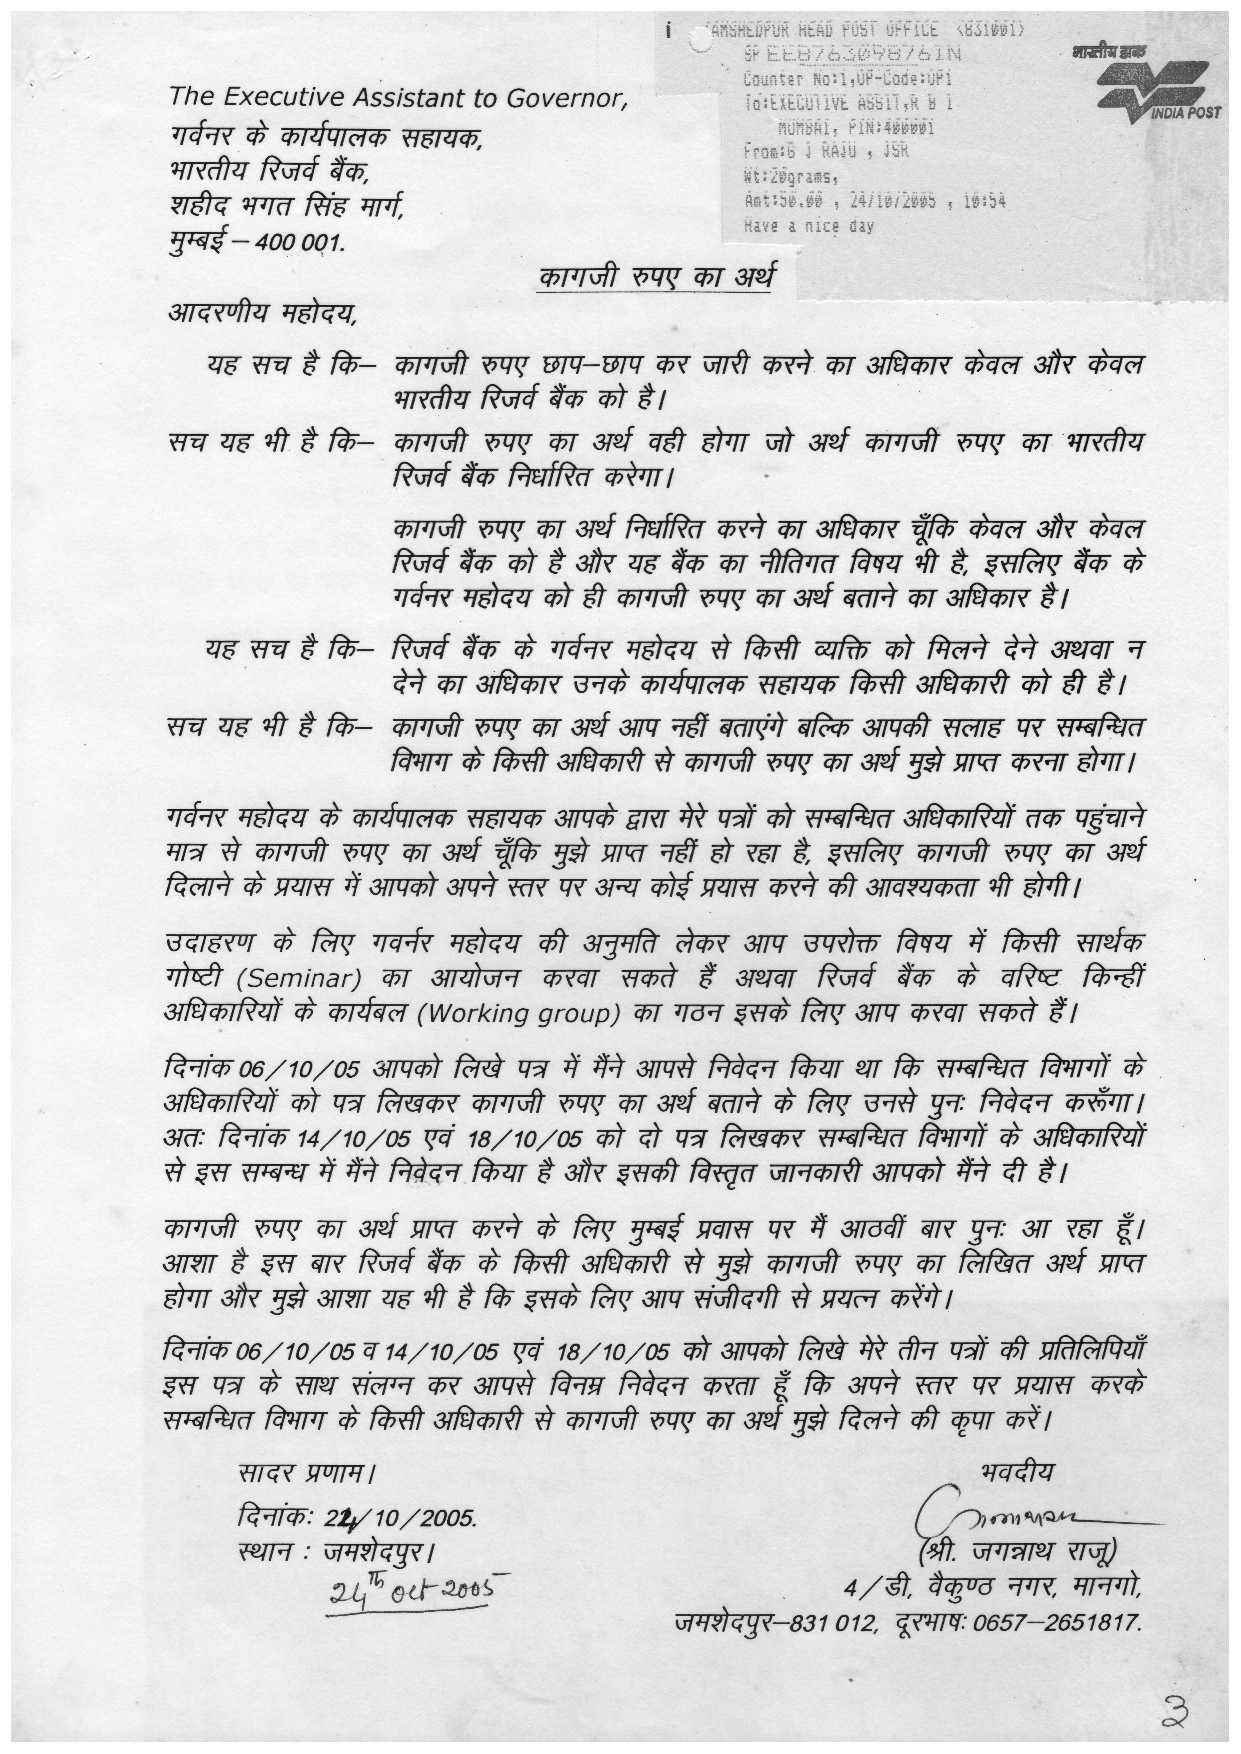 JAMSHEDPUR HEAD POST OFFICE (831001)
SP EE876309876IN
Counter No:1,OP-Code:OP1
To:EXECUTIVE ASSIT,R B I
MUMBAI, PIN:400001
From:G J RAJU , JSR
Wt:20grams,
Amt:50.00 , 24/10/2005 , 10:54
Have a nice day
भारतीय डाक
INDIA POST
The Executive Assistant to Governor,
गर्वनर के कार्यपालक सहायक,
भारतीय रिजर्व बैंक,
शहीद भगत सिंह मार्ग,
मुम्बई – 400 001.
कागजी रुपए का अर्थ
आदरणीय महोदय,
यह सच है कि– कागजी रुपए छाप–छाप कर जारी करने का अधिकार केवल और केवल
भारतीय रिजर्व बैंक को है।
सच यह भी है कि– कागजी रुपए का अर्थ वही होगा जो अर्थ कागजी रुपए का भारतीय
रिजर्व बैंक निर्धारित करेगा।
कागजी रुपए का अर्थ निर्धारित करने का अधिकार चूँकि केवल और केवल
रिजर्व बैंक को है और यह बैंक का नीतिगत विषय भी है, इसलिए बैंक के
गर्वनर महोदय को ही कागजी रुपए का अर्थ बताने का अधिकार है।
यह सच है कि– रिजर्व बैंक के गर्वनर महोदय से किसी व्यक्ति को मिलने देने अथवा न
देने का अधिकार उनके कार्यपालक सहायक किसी अधिकारी को ही है।
सच यह भी है कि– कागजी रुपए का अर्थ आप नहीं बताएंगे बल्कि आपकी सलाह पर सम्बन्धित
विभाग के किसी अधिकारी से कागजी रुपए का अर्थ मुझे प्राप्त करना होगा।
गर्वनर महोदय के कार्यपालक सहायक आपके द्वारा मेरे पत्रों को सम्बन्धित अधिकारियों तक पहुंचाने
मात्र से कागजी रुपए का अर्थ चूँकि मुझे प्राप्त नहीं हो रहा है, इसलिए कागजी रुपए का अर्थ
दिलाने के प्रयास में आपको अपने स्तर पर अन्य कोई प्रयास करने की आवश्यकता भी होगी।
उदाहरण के लिए गवर्नर महोदय की अनुमति लेकर आप उपरोक्त विषय में किसी सार्थक
गोष्टी (Seminar) का आयोजन करवा सकते हैं अथवा रिजर्व बैंक के वरिष्ट किन्हीं
अधिकारियों के कार्यबल (Working group) का गठन इसके लिए आप करवा सकते हैं।
दिनांक 06/10/05 आपको लिखे पत्र में मैंने आपसे निवेदन किया था कि सम्बन्धित विभागों के
अधिकारियों को पत्र लिखकर कागजी रुपए का अर्थ बताने के लिए उनसे पुनः निवेदन करूँगा।
अतः दिनांक 14/10/05 एवं 18/10/05 को दो पत्र लिखकर सम्बन्धित विभागों के अधिकारियों
से इस सम्बन्ध में मैंने निवेदन किया है और इसकी विस्तृत जानकारी आपको मैंने दी है।
कागजी रुपए का अर्थ प्राप्त करने के लिए मुम्बई प्रवास पर मैं आठवीं बार पुनः आ रहा हूँ।
आशा है इस बार रिजर्व बैंक के किसी अधिकारी से मुझे कागजी रुपए का लिखित अर्थ प्राप्त
होगा और मुझे आशा यह भी है कि इसके लिए आप संजीदगी से प्रयत्न करेंगे।
दिनांक 06/10/05 व 14/10/05 एवं 18/10/05 को आपको लिखे मेरे तीन पत्रों की प्रतिलिपियाँ
इस पत्र के साथ संलग्न कर आपसे विनम्र निवेदन करता हूँ कि अपने स्तर पर प्रयास करके
सम्बन्धित विभाग के किसी अधिकारी से कागजी रुपए का अर्थ मुझे दिलने की कृपा करें।
सादर प्रणाम।
भवदीय
दिनांक: 24/10/2005.
स्थान : जमशेदपुर।
(श्री. जगन्नाथ राजू)
24th Oct 2005
4/डी, वैकुण्ठ नगर, मानगो,
जमशेदपुर–831 012, दूरभाष: 0657–2651817.
3